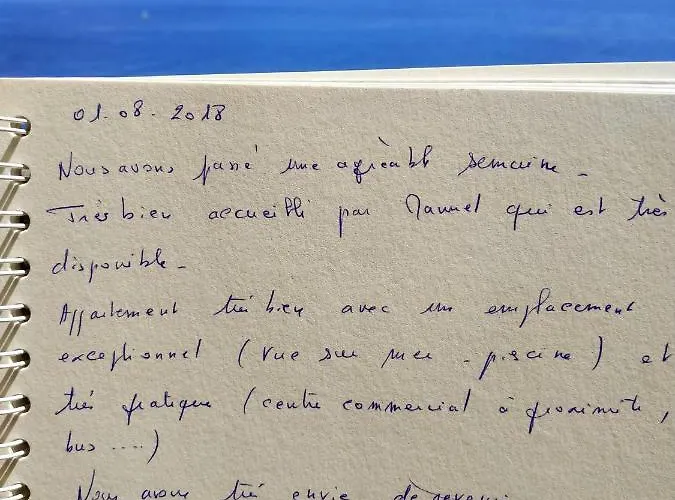 01.08.2018
Nous avons passé une agréable semaine.
Très bien accueilli par Manuel qui est très
disponible.
Appartement très bien avec un emplacement
exceptionnel (vue sur mer - piscine) et
très pratique (centre commercial à proximité,
bus ....)
Nous avons très envie de revenir